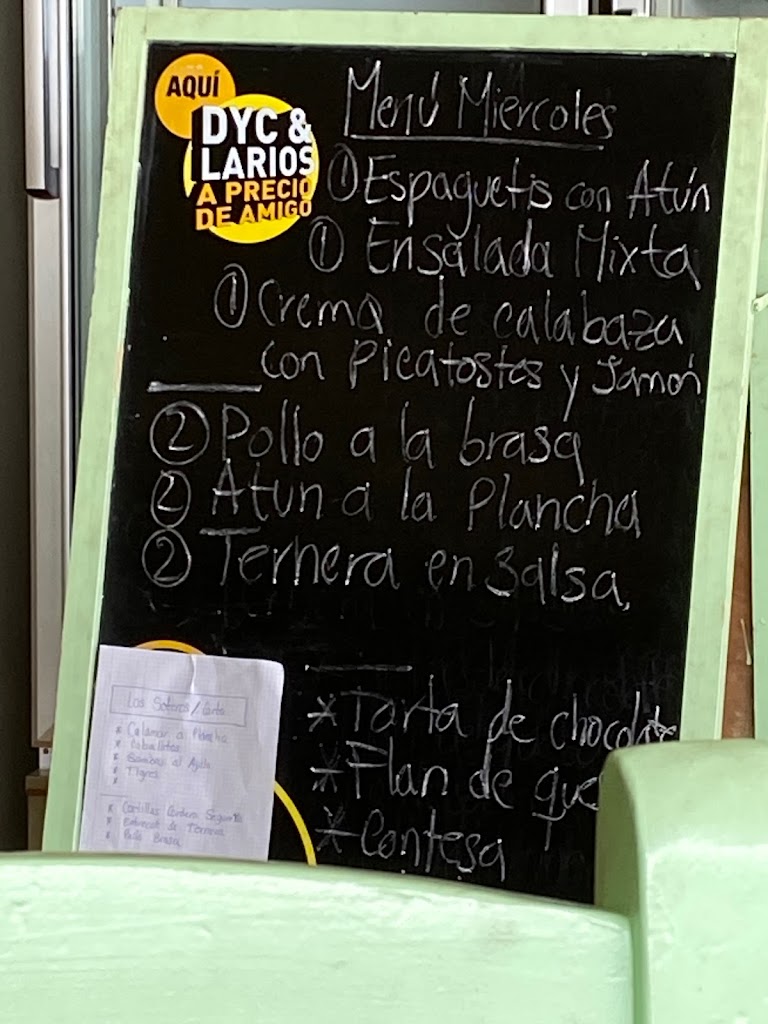 AQUÍ
DYC &
LARIOS
A PRECIO
DE AMIGO
Menú Miercoles
① Espaguetis con Atún
① Ensalada Mixta
① Crema de calabaza
con Picatostes y Jamón
② Pollo a la brasa
② Atun a la Plancha
② Ternera en Salsa,
* Tarta de chocolate
* Flan de que
* Contesa
* Calamar a Plancha
* Tigres
* Entrecot de Ternera
* Pollo Brasa